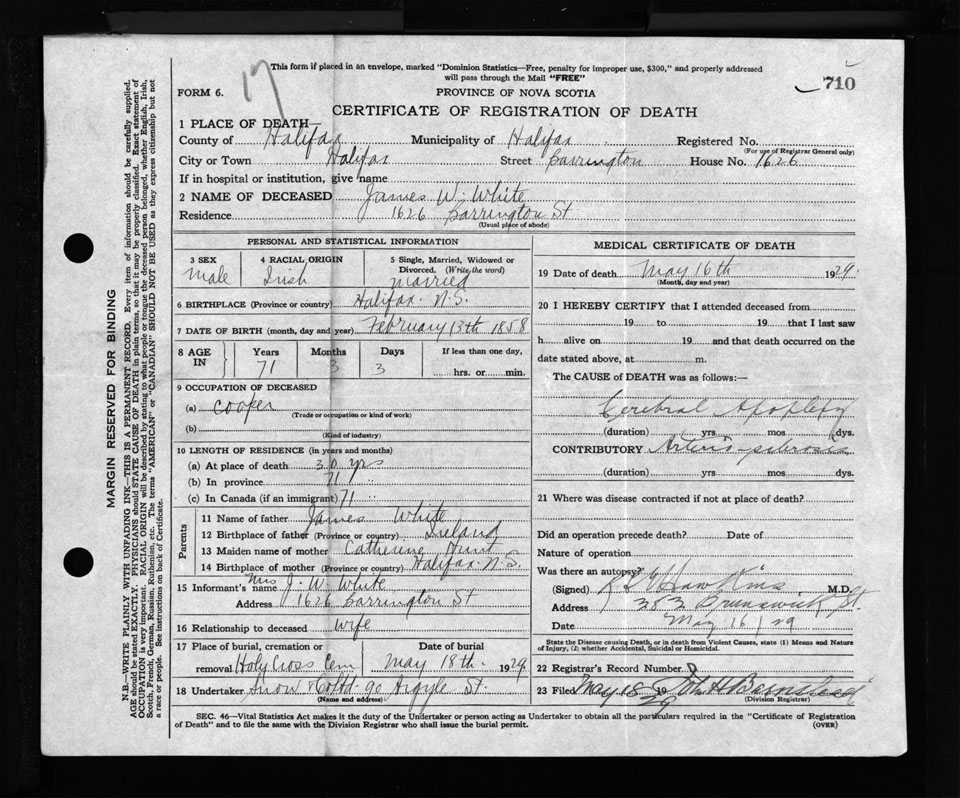 17
This form if placed in an envelope, marked "Dominion Statistics—Free, penalty for improper use, $300," and properly addressed
will pass through the Mail "FREE"
710
FORM 6.
PROVINCE OF NOVA SCOTIA
CERTIFICATE OF REGISTRATION OF DEATH
1 PLACE OF DEATH—
County of Halifax Municipality of Halifax Registered No.
(For use of Registrar General only)
City or Town Halifax Street Barrington House No. 1626
If in hospital or institution, give name
2 NAME OF DECEASED James W. White
Residence 1626 Barrington St
(Usual place of abode)
PERSONAL AND STATISTICAL INFORMATION
3 SEX
male
4 RACIAL ORIGIN
Irish
5 Single, Married, Widowed or
Divorced. (Write the word)
married
6 BIRTHPLACE (Province or country) Halifax N.S.
7 DATE OF BIRTH (month, day and year) February 13th 1858
8 AGE
IN
Years
71
Months
3
Days
3
If less than one day,
hrs. or min.
9 OCCUPATION OF DECEASED
(a) cooper
(Trade or occupation or kind of work)
(b)
(Kind of industry)
10 LENGTH OF RESIDENCE (in years and months)
(a) At place of death 30 yrs
(b) In province 71 "
(c) In Canada (if an immigrant) 71 "
Parents
11 Name of father James White
12 Birthplace of father (Province or country) Ireland
13 Maiden name of mother Catherine Hunt
14 Birthplace of mother (Province or country) Halifax N.S.
15 Informant's name Mrs J. W. White
Address 1626 Barrington St
16 Relationship to deceased wife
17 Place of burial, cremation or
removal Holy Cross Cem
Date of burial
May 18th 1929
18 Undertaker Snow & Co Ltd 90 Argyle St.
(Name and address)
MEDICAL CERTIFICATE OF DEATH
19 Date of death May 16th 1929
(Month, day and year)
20 I HEREBY CERTIFY that I attended deceased from
19 to 19 that I last saw
h alive on 19 and that death occurred on the
date stated above, at m.
The CAUSE of DEATH was as follows:—
Cerebral Apoplexy
(duration) yrs mos dys.
CONTRIBUTORY Arterio sclerosis
(duration) yrs mos dys.
21 Where was disease contracted if not at place of death?
Did an operation precede death? Date of
Nature of operation
Was there an autopsy?
(Signed) Hawkins M.D.
Address 383 Brunswick St.
Date May 16/29
State the Disease causing Death, or in death from Violent Causes, state (1) Means and Nature
of Injury, (2) whether Accidental, Suicidal or Homicidal.
22 Registrar's Record Number
23 Filed May 18 19 29 John H Barnstead
(Division Registrar)
SEC. 46—Vital Statistics Act makes it the duty of the Undertaker or person acting as Undertaker to obtain all the particulars required in the "Certificate of Registration
of Death" and to file the same with the Division Registrar who shall issue the burial permit.
(OVER)
MARGIN RESERVED FOR BINDING
N.B.—WRITE PLAINLY WITH UNFADING INK—THIS IS A PERMANENT RECORD. Every item of information should be carefully supplied.
AGE should be stated EXACTLY. PHYSICIANS should STATE CAUSE OF DEATH in plain terms, so that it may be properly classified. Exact statement of
OCCUPATION is very important. RACIAL ORIGIN will be described by stating to what people or tongue the deceased person belonged, whether English, Irish,
Scotch, French, German, Russian, Ruthenian, etc. The terms "AMERICAN" or "CANADIAN" SHOULD NOT BE USED as they express citizenship but not
a race or people. See instructions on back of Certificate.